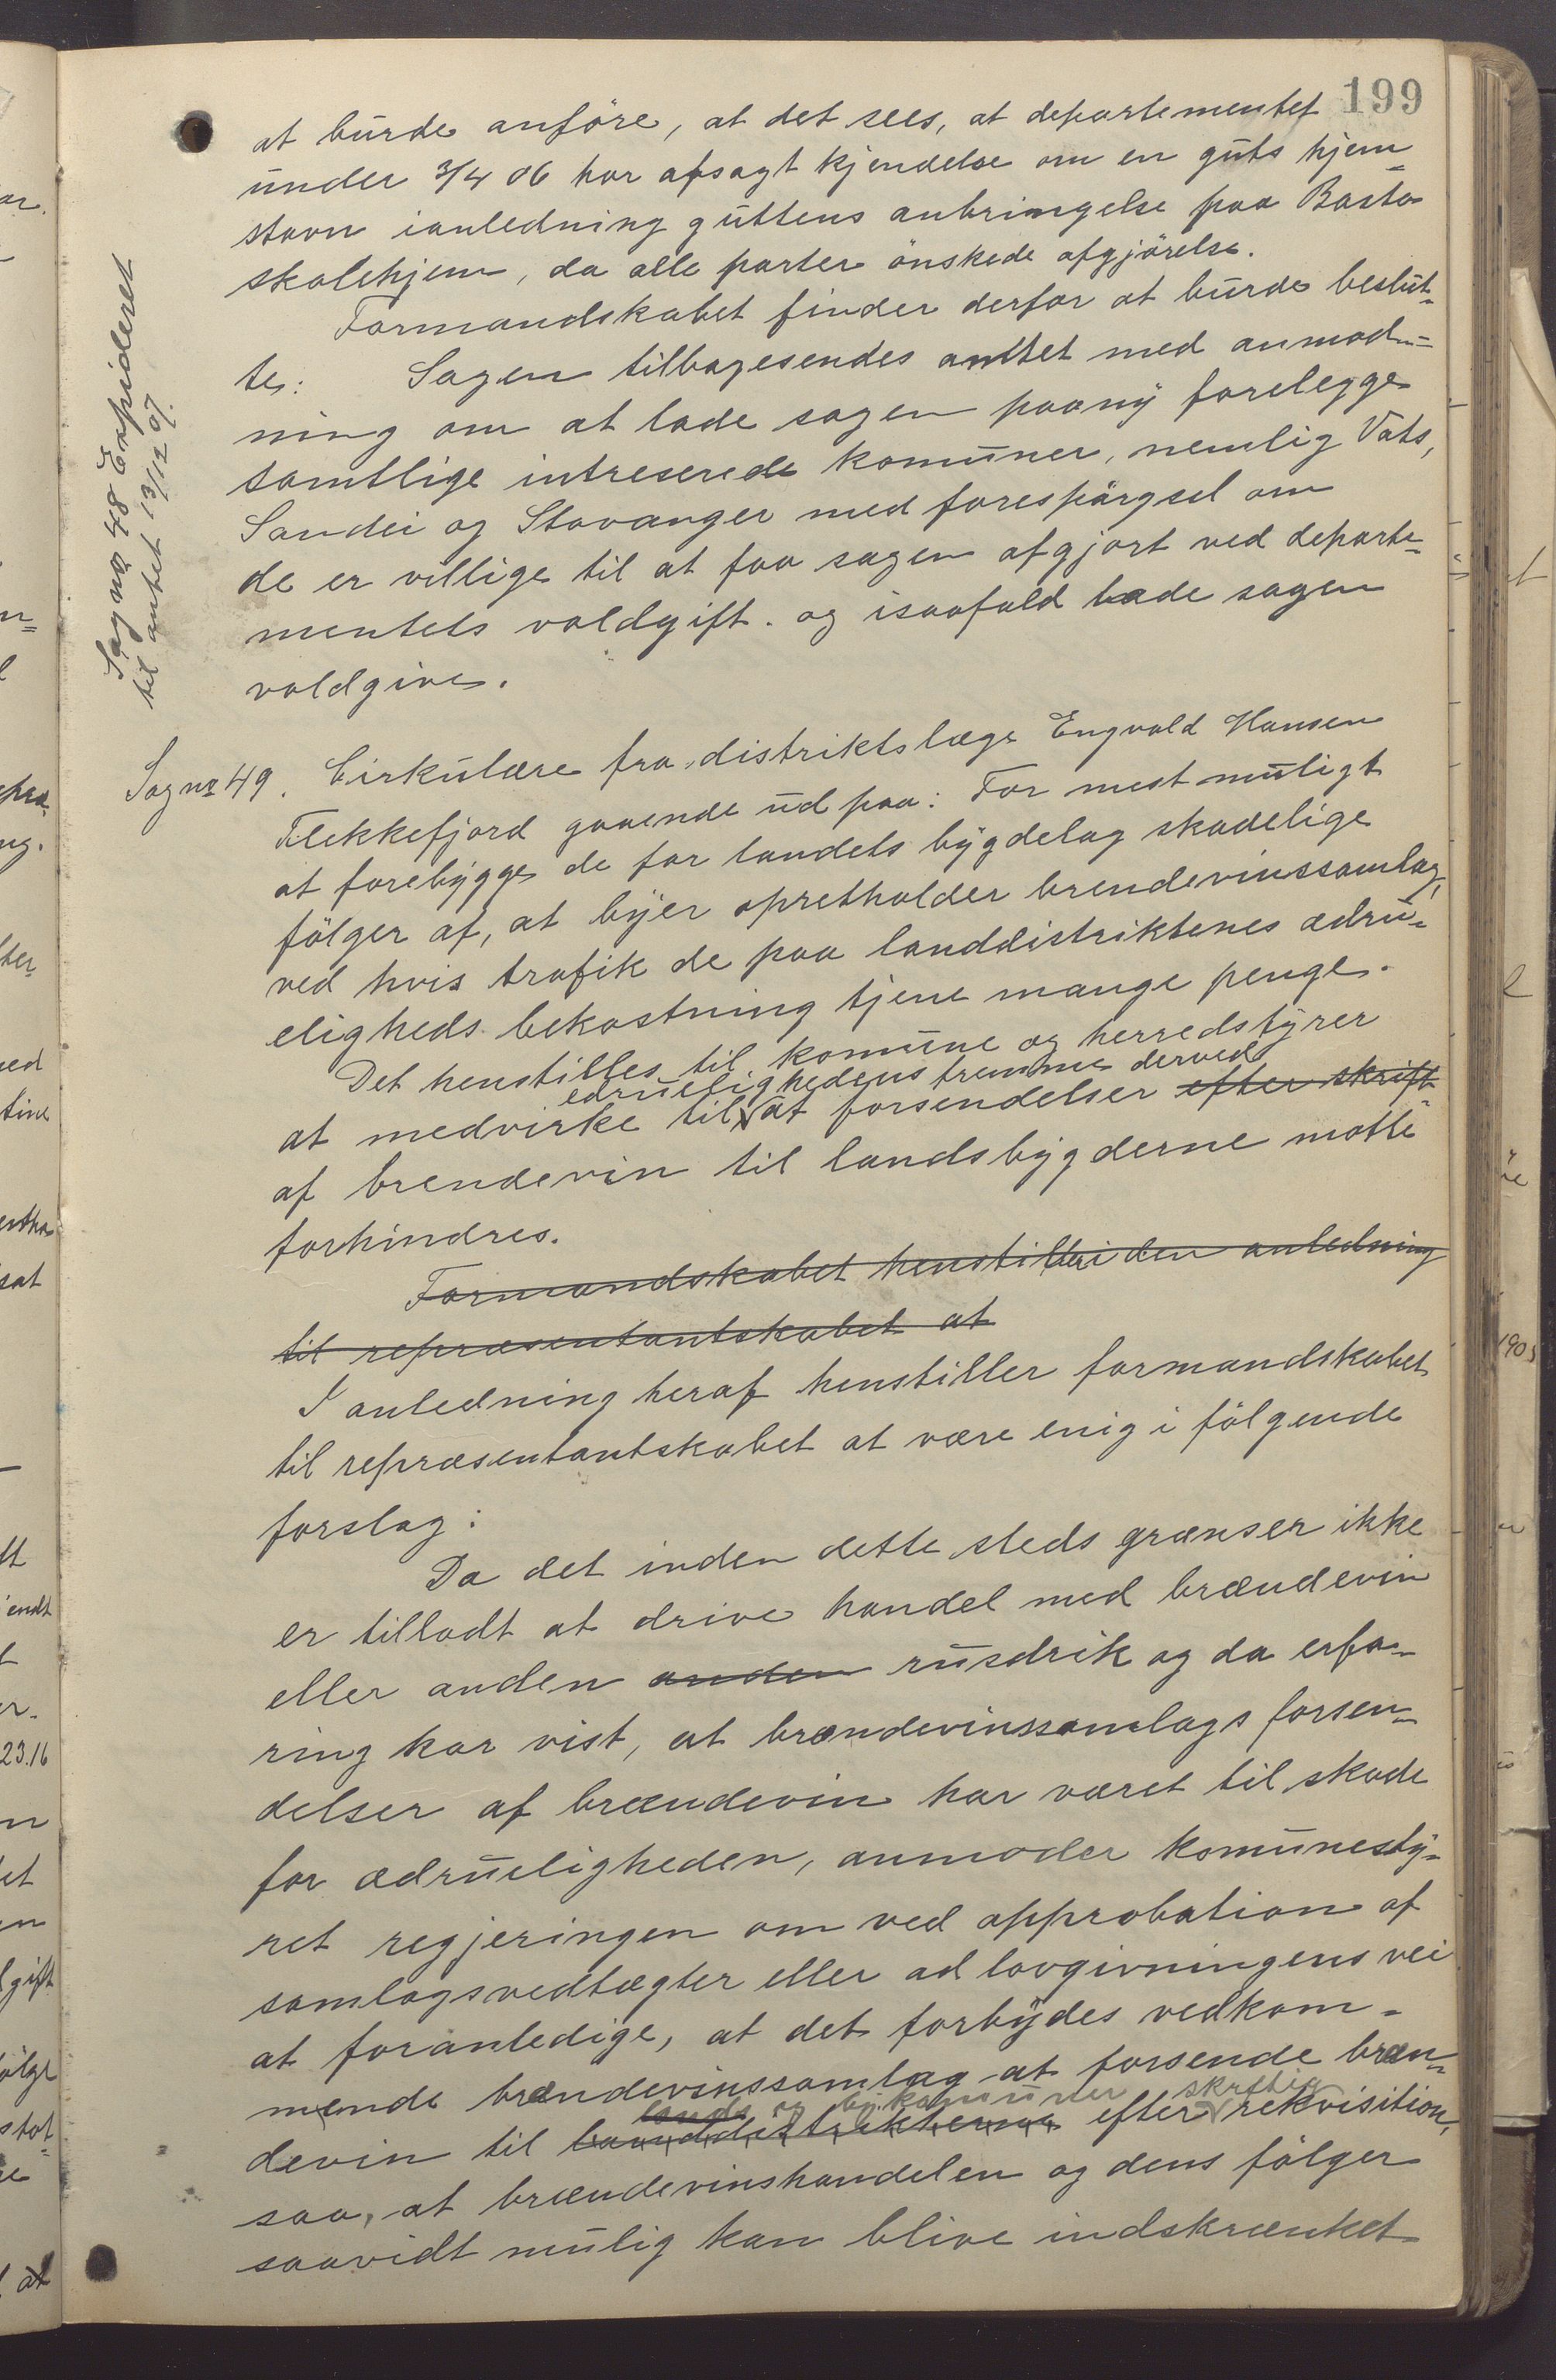 199
at burde anføre, at det sees, at departementet
under 3/4 06 har afsagt kjendelse om en guts hjem-
stavn ianledning guttens anbringelse paa Bastø
skolehjem, da alle parter ønskede afgjørelse.
Formandskabet finder derfor at burde beslut-
te: Sagen tilbagesendes amtet med anmod-
ning om at lade sagen paany forelegge
samtlige intreserede komuner, nemlig Vats,
Sandei og Stavanger med forespørgsel om
de er villige til at faa sagen afgjort ved departe-
mentets voldgift. og isaafald lade sagen
voldgives.
Sag no 48 Expideret
til amtet 13/12 07.
Sag no 49. Cirkulære fra distriktslæge Engvald Hansen
Flekkefjord gaaende ud paa: For mest muligt
at forebygge de for landets bygdelag skadelige
følger af, at byer opretholder brendevinssamlag,
ved hvis trafik de paa landdistriktenes ædru-
eligheds bekostning tjene mange penge.
Det henstilles til komune og herredstyrer
edruelighedens fremme derved
at medvirke til at forsendelser efter skrift-
af brendevin til landsbygderne motte
forhindres.
Formandskabet henstiller i den anledning
til repræsentantskabet at
I anledning heraf henstiller formandskabet
til repræsentantskabet at være enig i følgende
forslag:
Da det inden dette steds grænser ikke
er tilladt at drive handel med brændevin
eller anden anden rusdrik og da erfa-
ring har vist, at brændevinssamlags forsen-
delser af brændevin har været til skade
for ædrueligheden, anmoder komunesty-
ret regjeringen om ved approbation af
samlagsvedtægter eller ad lovgivningens vei
at foranledige, at det forbydes vedkom-
mende brændevinssamlag at forsende bræn-
lands og by. komuner skriftlig
devin til landdistrikterne efter rekvisition,
saa, at brændevinshandelen og dens følger
saavidt mulig kan blive indskrænket